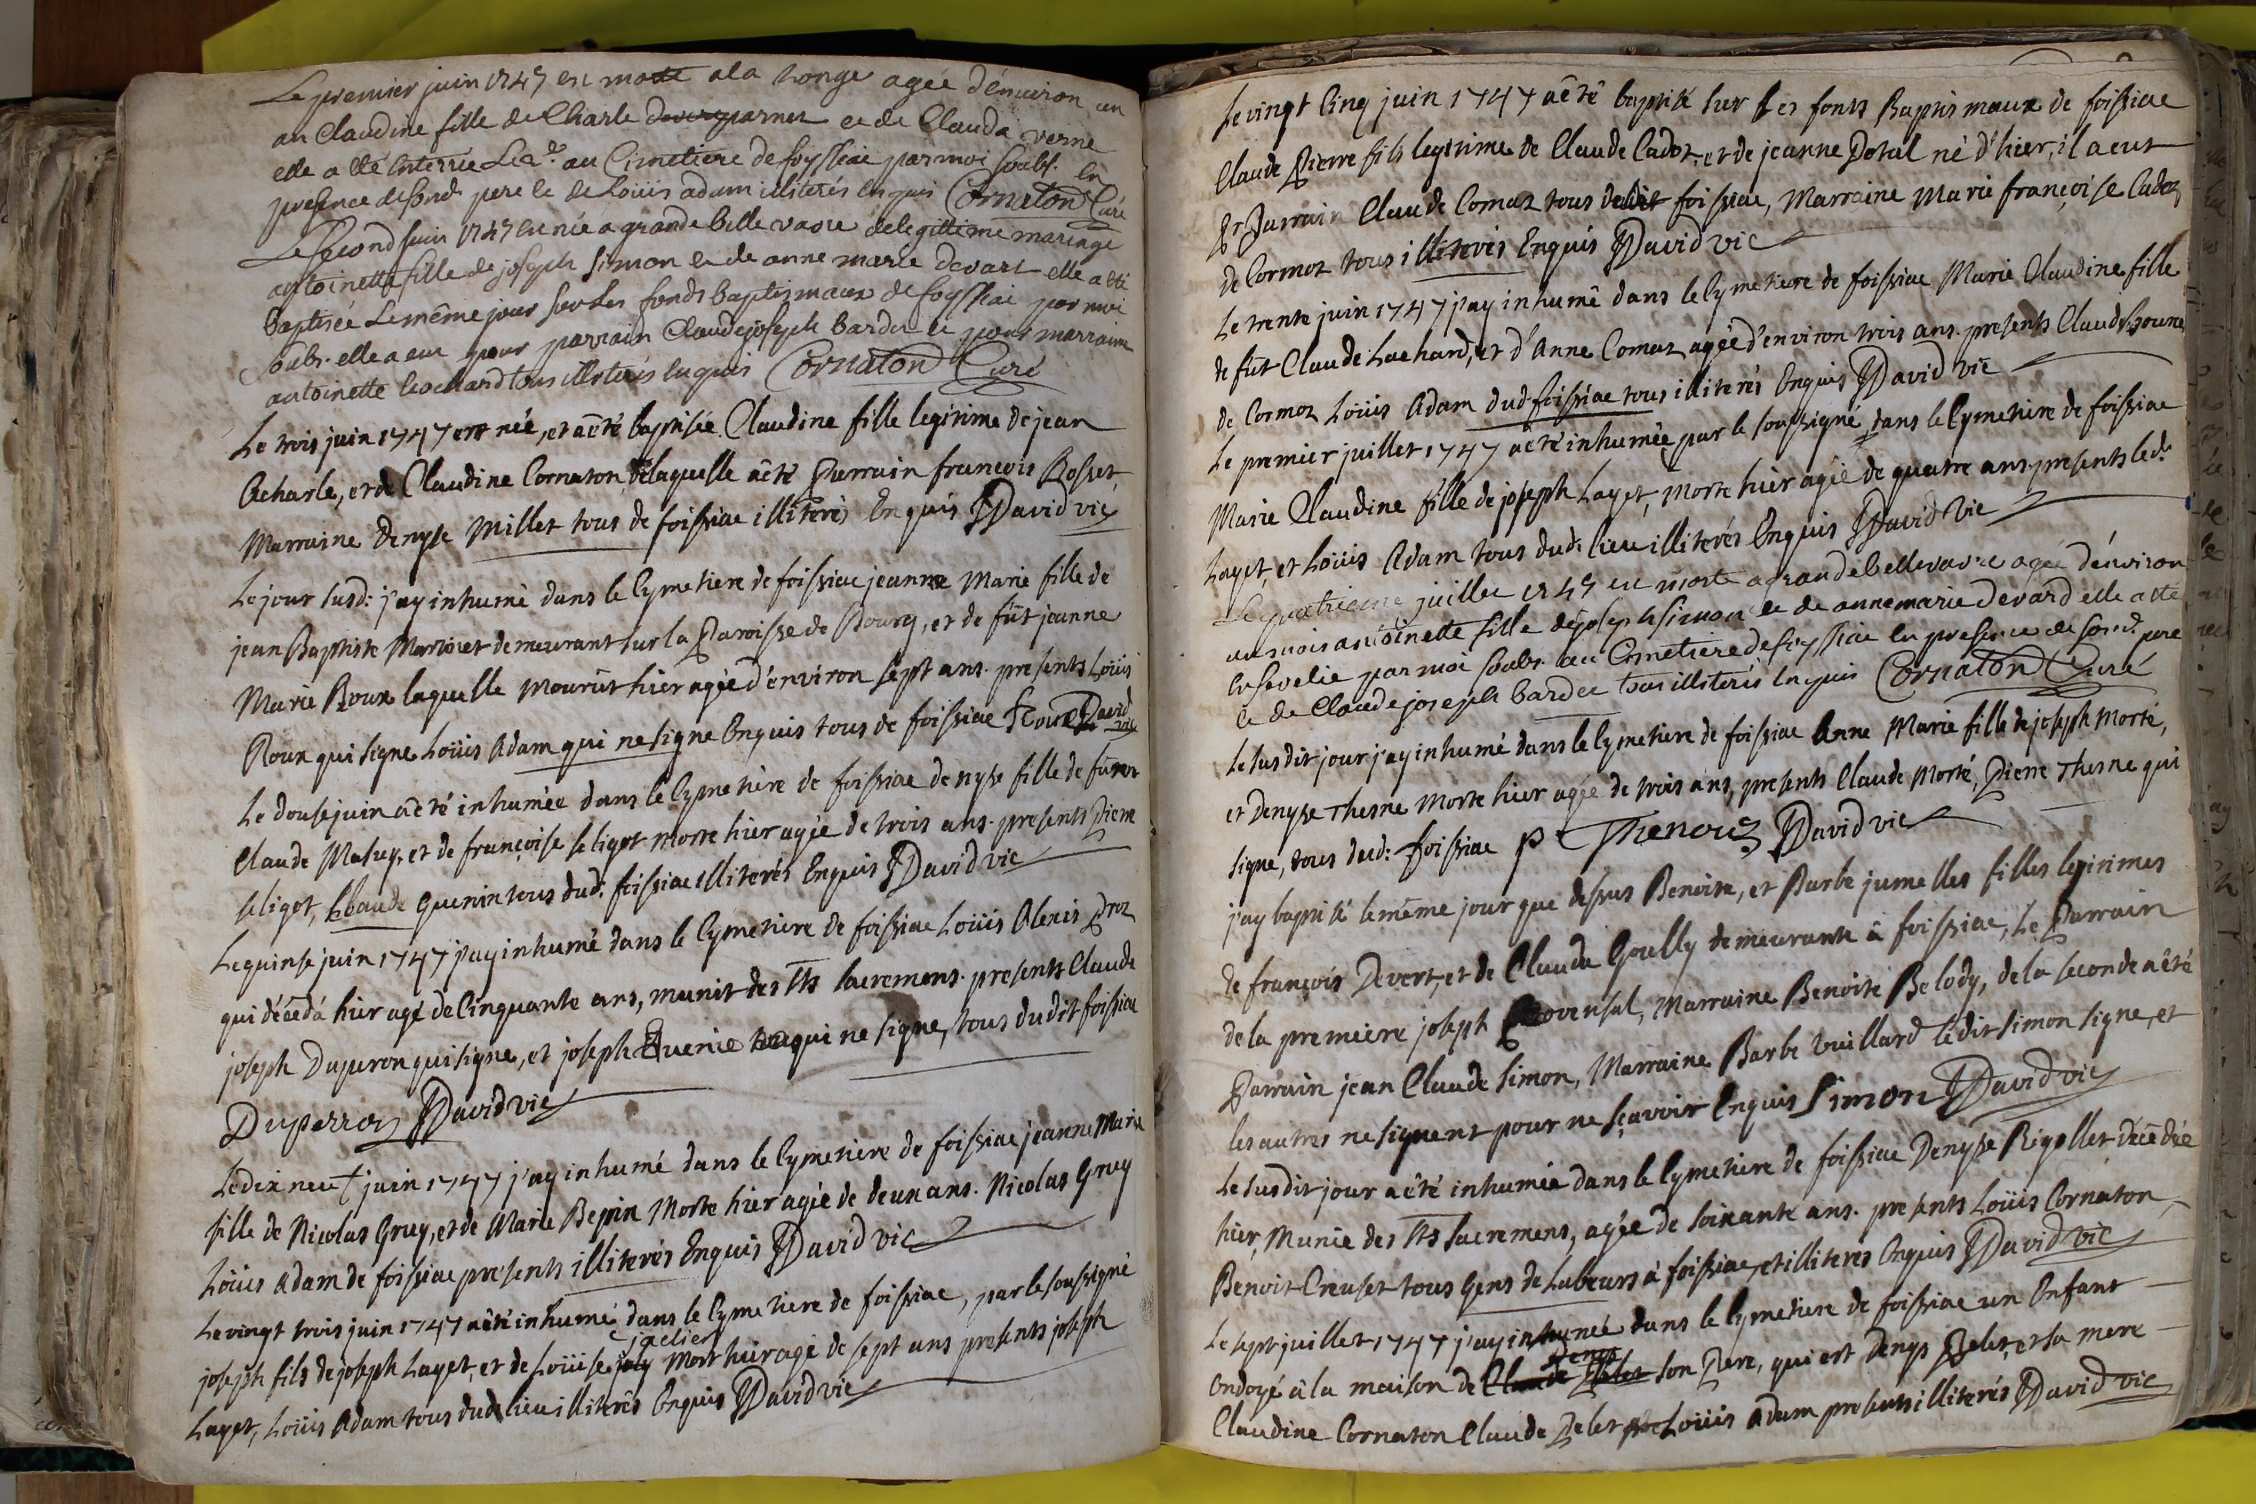 Le premier juin 1747 est morte a la Longe agée d'énuiron un
an Claudine fille de Charle et de Clauda verne
elle a été Enterrée Led. au Cimetiere de foyssiac par moi Soubs. En
presence de sond. pere et de Loüis adam illiterés enquis Cornaton Curé
Le Second juin 1747 est née a grande belle vavre de legittime mariage
antoinette fille de joseph Simon et de anne marie devart elle a été
baptisée Le même jour sur Les fonds baptismaux de foyssiac par moi
soubs. elle a eue pour parrain Claude joseph bardet et pour marraine
antoinette Lochard tous illiterés enquis Cornaton Curé
Le trois juin 1747 est née, et a êté baptisée Claudine fille legitime de jean
Acharle, et de Claudine Cornaton, de laquelle a êté Parrain françois Rosset,
Marraine Denyse Millet tous de foissiac illiterés Enquis David vic
Le jour susd: j'ay inhumé dans le Cymetiere de foissiac jeanne Marie fille de
jean Baptiste Martinet demeurant sur la Paroisse de Bourg, et de fût jeanne
Marie Roux laquelle mourût hier agée d'environ sept ans. presents Loüis
Roux qui signe Loüis Adam qui ne signe Enquis tous de foissiac Roux David vic
Le douse juin a êté inhumée dans le Cymetiere de foissiac denyse fille de fûrent
Claude Masuy, et de françoise seligot morte hier agée de trois ans. presents Pierre
seligot, Claude Guenin tous dud: foissiac illiterés Enquis David vic
Le quinse juin 1747 j'ay inhumé dans le Cymetiere de foissiac Loüis Alexis Proz
qui décéda hier agé de Cinquante ans, munit des Sts sacremens. presents Claude
joseph Duperon qui signe, et joseph qui ne signe, tous dudit foissiac
Duperron David vic
Le dix neuf juin 1747 j'ay inhumé dans le Cymetiere de foissiac jeanne Marie
fille de Nicolas Gruy, et de Marie Bepin Morte hier agée de deux ans. Nicolas Gruy
Loüis Adam de foissiac presents illiterés Enquis David vic
Le vingt trois juin 1747 a êté inhumé dans le Cymetiere de foissiac, par le soussigné
joseph fils de joseph Layet, et de Loüise jaclier Mort hier agé de sept ans presents joseph
Layet, Loüis Adam tous dud. lieu illiterés Enquis David vic
Le vingt Cinq juin 1747 a êté baptisé sur Les fonts Baptismaux de foissiac
Claude Pierre fils legitime de Claude Cadoz, et de jeanne Dotal né d'hier, il a eut
Pr Parrain Claude Comaz tous dudit foissiac, Marraine Marie françoise Cadoz
de Cormoz tous illiterés Enquis David vic
Le trente juin 1747 j'ay inhumé dans le Cymetiere de foissiac Marie Claudine fille
de fût Claude Lachard, et d'Anne Comaz agée d'environ trois ans. presents Claude
de Cormoz Loüis Adam dud. foissiac tous illiterés Enquis David vic
Le premier juillet 1747 a êté inhumée par le soussigné dans le Cymetiere de foissiac
Marie Claudine fille de joseph Layet, Morte hier agée de quatre ans presents led:
Layet, et Loüis Adam tous dud: lieu illiterés Enquis David Vic
Le quatrieme juillet 1747 est morte a grande belle vavre agée d'énviron
un mois antoinette fille de joseph simon et de anne marie devard elle a été
Ensevelie par moi soubs. au Cimetiere de foyssiac En presence de sond. pere
et de Claude joseph bardet tous illiterés Enquis Cornaton Curé
Le susdit jour j'ay inhumé dans le Cymetiere de foissiac Anne Marie fille de joseph Morté,
et Denyse Thesne Morte hier agée de trois ans, presents Claude Morté, Pierre Thesne qui
signe, tous dud: foissiac p David vic
j'ay baptisé le même jour que dessus Benoite, et Barbe jumelles filles legitimes
de françois Devert, et de Clauda Goully demeurants à foissiac, Le Parrain
de la premiere joseph Provensal, Marraine Benoite Belody, de la seconde a êté
Parrain jean Claude simon, Marraine Barbe Vuillard ledit simon signe, et
les autres ne signent pour ne sçavoir Enquis Simon David vic
Le susdit jour a êté inhumée dans le Cymetiere de foissiac Denyse Rigollet Décédée
hier, Munie des Sts sacremens, agée de soixante ans. presents Loüis Cornaton,
Benoit Creuset tous Gens de Labeurs à foissiac, et illiteres Enquis David vic
Le sept juillet 1747 j'ay inhumée dans le Cymetiere de foissiac un Enfant
Ondoyé à la maison de Claude Denys Pelet son Pere, qui est Denys Pelet, et sa mere
Claudine Cornaton Claude Pelet Loüis Adam presents illiterés David vic